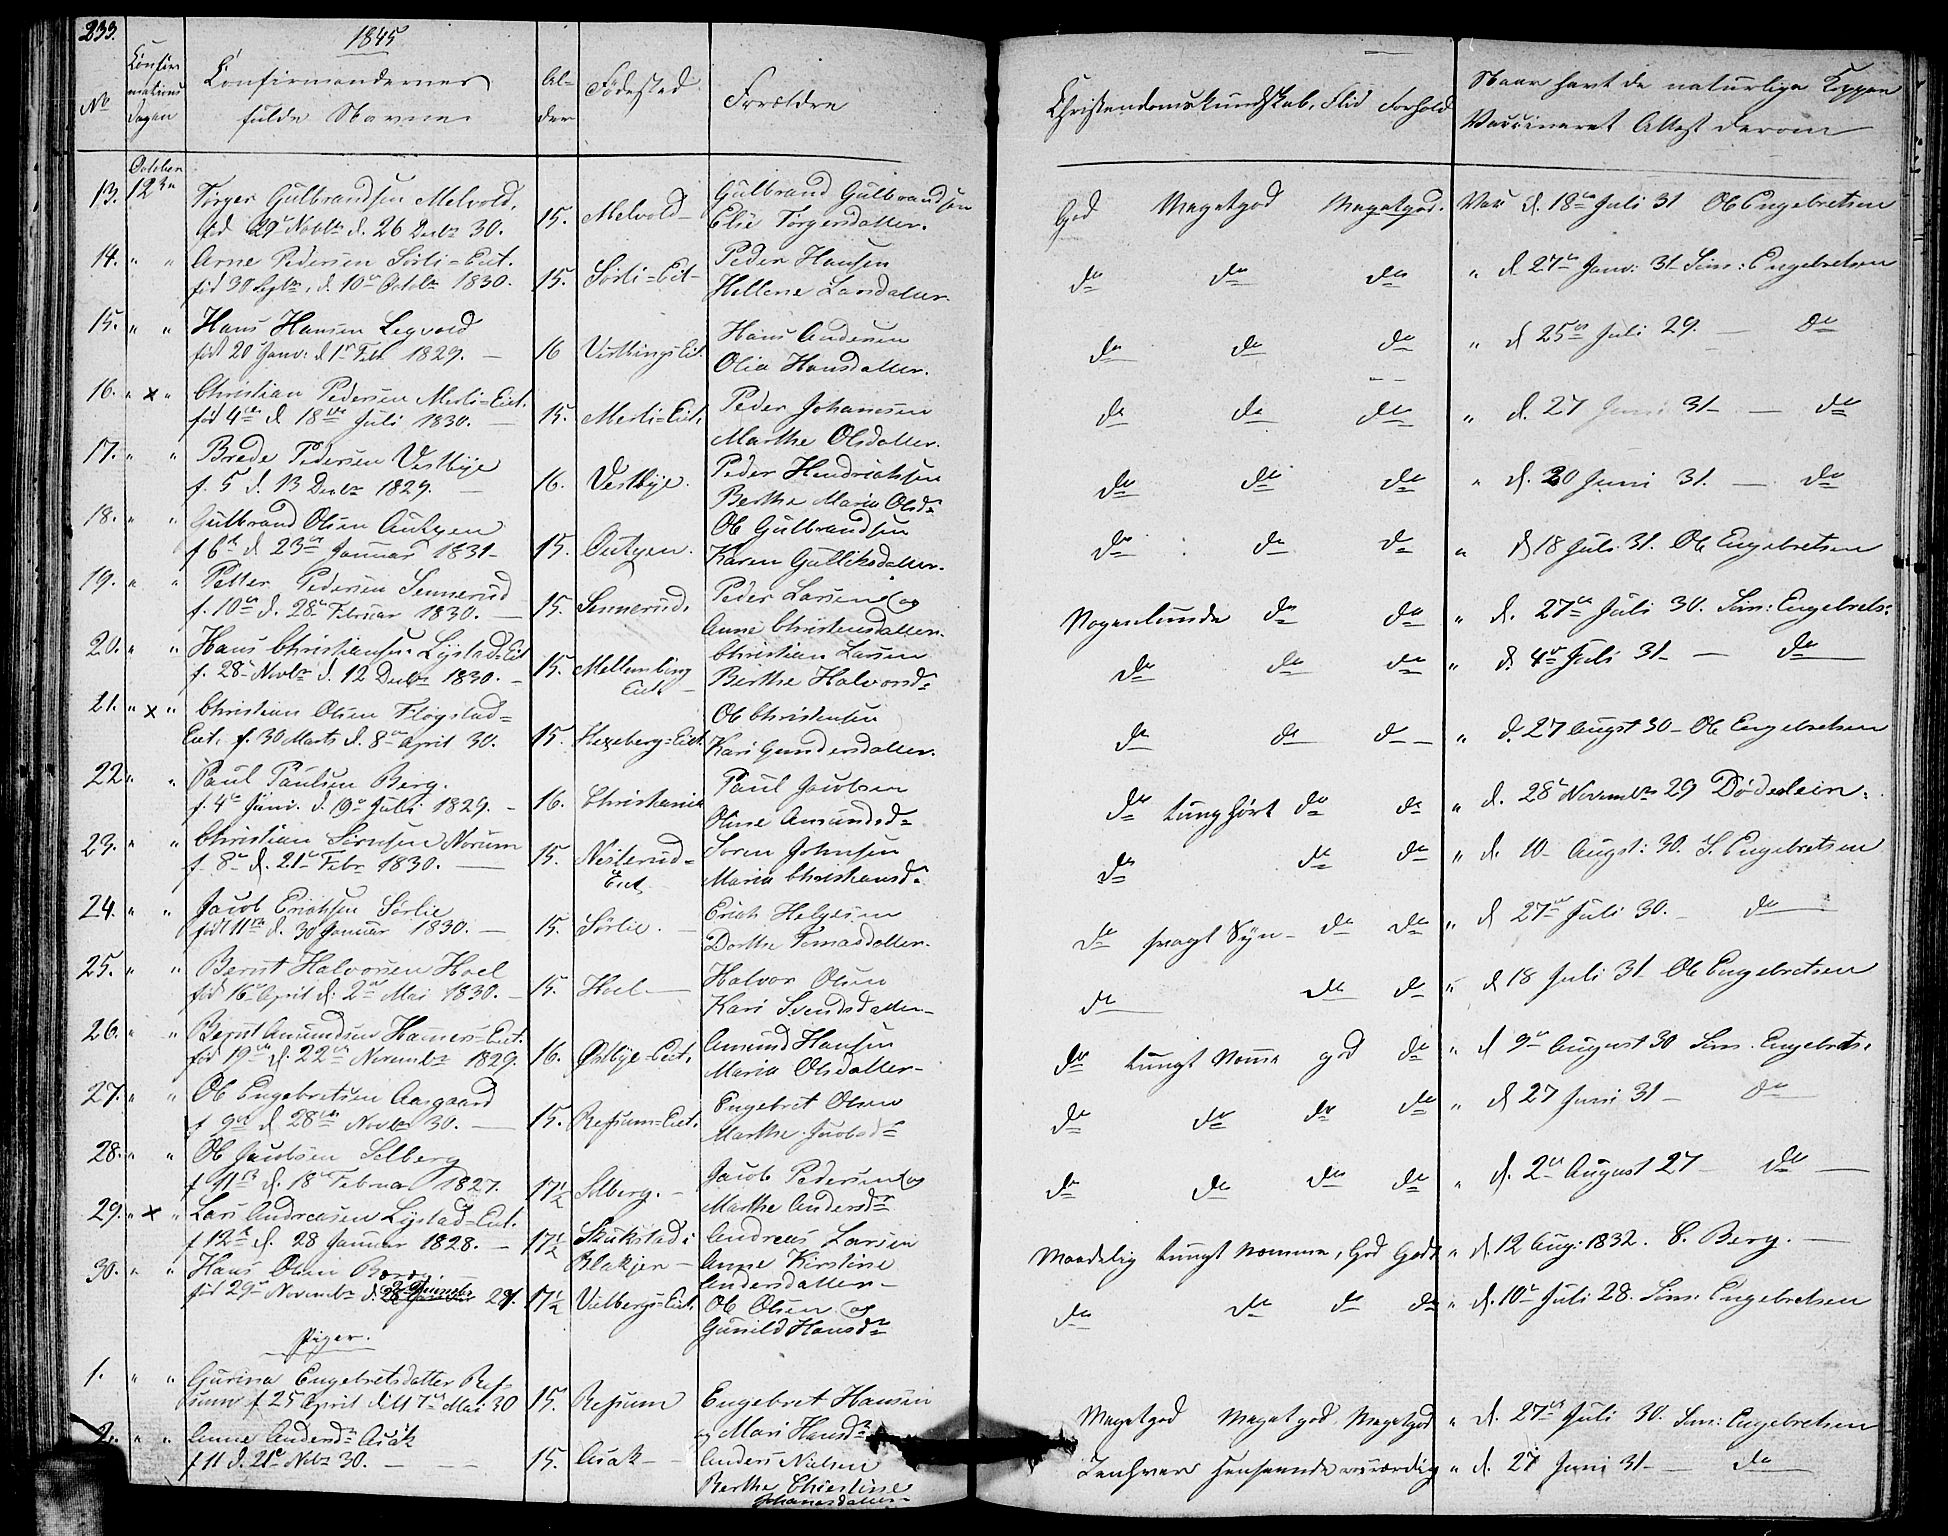 233.
1845
No
Confir
mations
Dagen
Confirmandernes
fulde Navne
Al-
der
Fødested
Forældre
Christendomskundskab, Flid Forhold
Naar havt de naturlige Kopper
Vaccineret Attest derom
October
13. 12te Torger Gulbrandsen Melvold. 15. Melvold Gulbrand Gulbrandsen God Megetgod Megetgod. Vac d. 18de Juli 31 Ole Engebretsen
fød 29 Novbr d. 26 Decbr 30. Elie Torgersdatter.
14. " " Arne Pedersen Sørli-Eiet. 15. Sørli-Eiet Peder Hansen do do do " d 27de Janv: 31 Sim: Engebretsen
fød 30 Septbr, d. 10de Octbr 1830. Hellene Larsdatter.
15. " " Hans Hansen Legvold 16 Vestbings Eiet. Hans Andersen do do do " d 25de Juli 29. — do
fød 20 Janv: d 1 Feb. 1829. — Olia Hansdatter.
16. " x " Christian Pedersen Merli-Eiet. 15. Merli-Eiet. Peder Johannsen do do do " d. 27 Juni 31 — do
fød 4de d 18de Juli 1830. — Marthe Olsdatter.
17. " " Brede Pedersen Vestbye 16. Vestbye. Peder Hendrichsen do do do " d. 30 Juni 31. — do
f. 5 d. 13 Decbr 1829. — Berthe Maria Olsdr
18. " " Gulbrand Olsen Autzen 15. Outzen. Ole Gulbrandsen do do do " d 18 Juli 31. Ole Engebretsen
f 6te d 23de Januar 1831 Karen Gulliksdatter.
19. " " Petter Pedersen Sennerud 15. Sennerud. Peder Larsen og Nogenlunde do do " d. 27de Juli 30. Sim: Engebrets:
f. 10de d. 28de Februar 1830. — Anne Christensdatter.
20. " " Hans Christiansen Lystad-Eiet 15. Mellembing Eiet Christian Larsen do do do " d. 4de Juli 31 — do
f. 28 Novbr d. 12 Decbr 1830. Berthe Halvorsdr
21. " x " Christian Olsen Fløgstad= 15. Hexeberg=Eiet. Ole Christensen do do do " d. 27 Augst 30 Ole Engebretsen
Eiet. f. 30 Marts d. 8de April 30. Kari Gundersdatter.
22. " Paul Paulsen Berg. 16. Christiania Paul Jacobsen do tunghørt do do " d. 28 Novembr 29 Døderlein.
f. 4de Juni. d. 19de Juli 1829. Oline Amundsdr
23. " " Christian Sørnsen Norum 15. Nesterud= Eiet Søren Johnsen do do do " d. 10 Augst: 30. S. Engebretsen
f. 8de d. 21de Febr 1830. — Maria Christiansd.
24. " " Jacob Erichsen Sørlie 15. Sørlie. Erich Helgesen do svagt Syn do do " d 27de Juli 30. do
fød 11te d. 30 Januar 1830. — Dorthe Tomasdatter.
25. " " Bernt Halvorsen Hoel 15. Hoel Halvor Olsen do do do " d 18 Juli 31 Ole Engebretsen
fød 16de April d. 2den Mai 1830. Kari Svendsdatter
26. " Bernt Amundsen Hamers=Eiet. 16. Østbye-Eiet. Amund Hansen do tungt Nemme god do " d 9de August 30 Sim. Engebrets.
fød 19de d. 22de Novembr 1829. Maria Olsdatter
27. " " Ole Engebretsen Aasgaard 15. Refsum=Eiet. Engebret Olsen do do do do " d 27 Juni 31 do
f 9de d 28de Novbr 30. — Marthe Jacobsdr
28. " " Ole Jacobsen Selberg 17½ Selberg. Jacob Pedersen og do do do do " d. 2den August 27 do
f 11te d. 18de Februar 1827. Marthe Andersdr
29. " x " Lars Andreasen Lystad-Eiet. 17½ Skukstad i Blakjer Andreas Larsen Maadelig tungt Nemme, God Godt " d. 12 Aug. 1832. C. Berg.
f 12te d. 28 Januar 1828. — Anne Kirstine Andersdatter
30. " " Hans Olsen 17½ Vilbergs-Eiet. Ole Olsen og do do do do " d. 10de Juli 28. Sim. Engebretsen
fød 29de Novembr d. 27. Gunild Hansdr
Piger.
1. " " Gurina Engebretsdatter Ref- 15. Refsum Engebret Hansen Megetgod Megetgod Megetgod " d. 27de Juli 30. Sim: Engebretsen
sum f 25 April d. 17de Mai 30 og Mari Hansdr
2. " " Anne Andersdr Asak 15. Asak Anders Nielsen " d. 27 Juni 31 do
f 11 d. 21de Novbr 30. — Berthe Christine
Johanesdatter